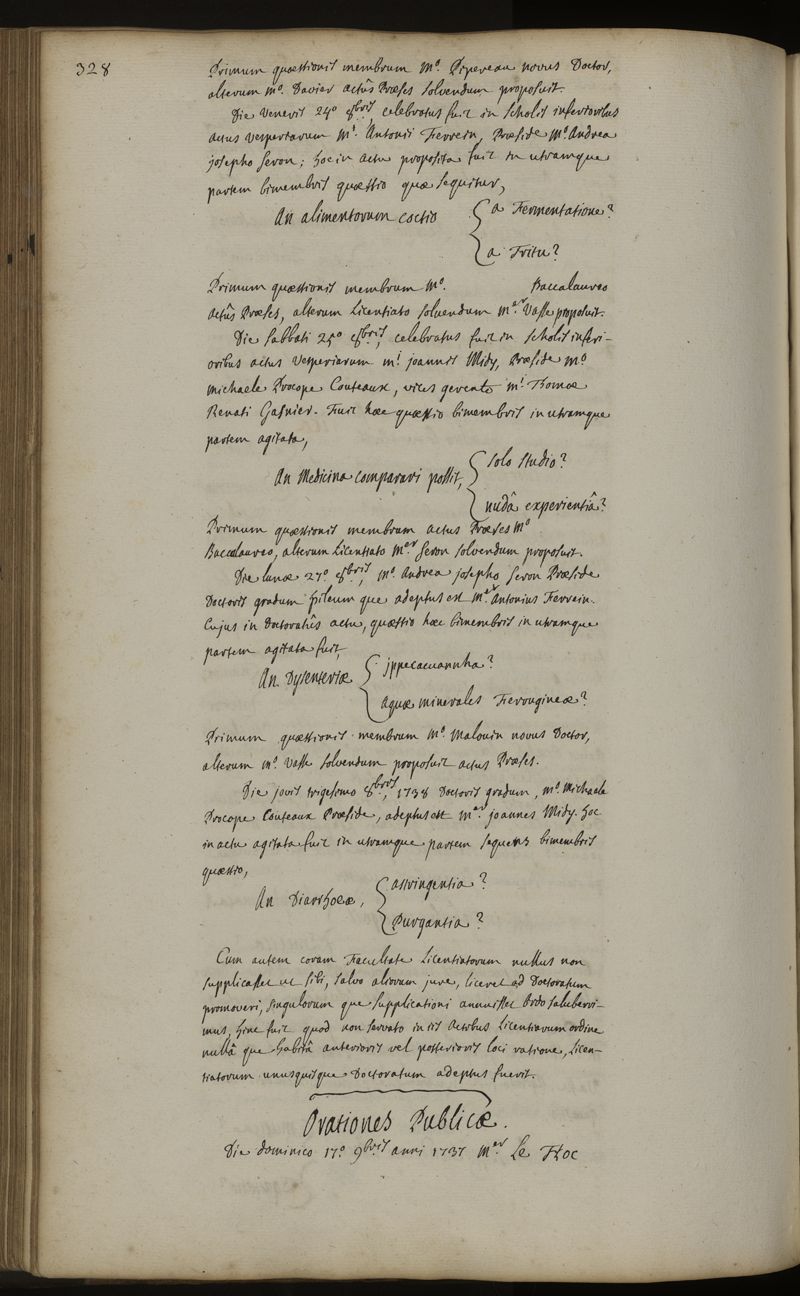 328
Primum quæstionis membrum Mo. Pipereau novus Doctor,
alterum mo. Davier actûs Præses solvendum proposuit.
Die Veneris 24o 8bris, celebratus fuit in scholis inferioribus
actus vesperiarum Mi. Antonii Ferrein, Præside Mo Andrea
josepho Seron; hoc in actu proposita fuit in utramque
partem bimembris quæstio quæ sequitur,
An alimentorum coctio { a Fermentatione?
{ a Tritu?
Primum quæstionis membrum Mo. Baccalaureo
actûs Præses, alterum Licentiato solvendum Mer. Vasse proposuit.
Die Sabbati 25o 8bris, celebratus fuit in scholis inferi-
oribus actus Vesperiarum mi joannis Midy, Præside mo
michaele Procope Couteaux, vices gerente mi Thomæ
Renati Gasnier. Fuit hæc quæstio bimembris in utramque
partem agitata,
An Medicina comparari possit, { solo studio?
{ nudâ experientiâ?
Primum quæstionis membrum actus Præses Mo
Baccalaureo, alterum Licentiato Mer Seron solvendum proposuit.
Die lunæ 27o 8bris, Mo. Andrea josepho Seron Præside
Doctoris gradum pileumque adeptus est Mer Antonius Ferrein.
Cujus in Doctoratûs actu, quæstio hæc bimembris in utramque
partem agitata fuit,
An Dysenteriæ { jppecacuannha?
{ aquæ minerales Ferrougineæ?
Primum quæstionis membrum Mo. Malouin novus Doctor,
alterum Mo. Vasse solvendum proposuit actus Præses.
Die jovis trigesimo 8bris, 1738 Doctoris gradum, mo. Michaele
Procope Couteaux Præside, adeptus est mer joannes Midy. hoc
in actu agitata fuit in utramque partem sequens bimembris
quæstio,
An Diarrhoeæ, { astringentia?
{ Purgantia?
Cum autem coram Facultate Licentiatorum nullus non
supplicasset ut sibi, salvo aliorum jure, liceret ad Doctoratum
promoveri, singulorum que supplicationi annuisset Ordo saluberri-
mus, hinc fuit quod non servato in iis Actibus Licentiarum ordine
nullâ que habitâ anterioris vel posterioris loci ratione, Licen-
tiatorum unusquisque Doctoratum adeptus fuerit.
Orationes Publicæ.
Die dominico 17o 9bris anni 1737 Mer Le Hoc